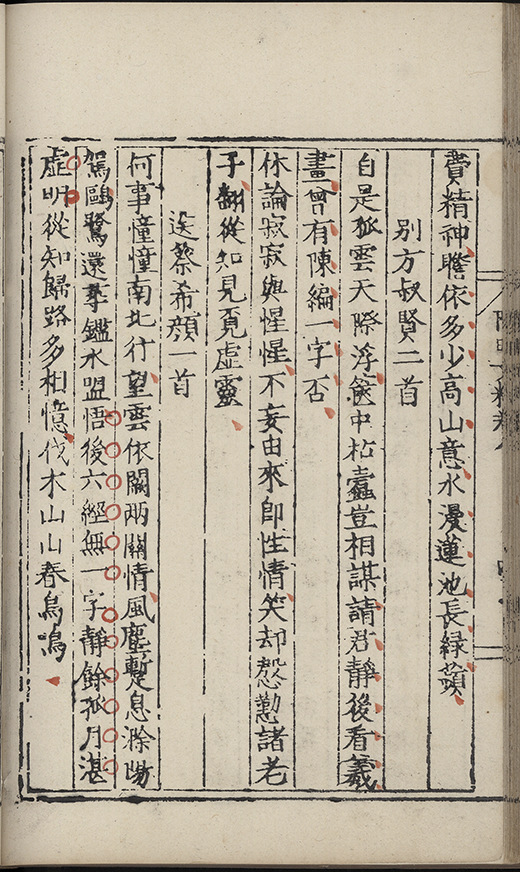 費精神瞻依多少高山意水漫蓮池長綠蘋
別方叔賢二首
自是孤雲天際浮篋中枯蠹豈相謀請君靜後看羲
畫曾有陳編一字否
休論寂寂與惺惺不妄由來即性情笑却慇懃諸老
子翻從知見覓虛靈
送蔡希顏一首
何事憧憧南北行望雲依闕兩關情風塵暫息滁陽
駕鷗鷺還尋鑑水盟悟後六經無一字靜餘孤月湛
虛明從知歸路多相憶伐木山山春鳥鳴